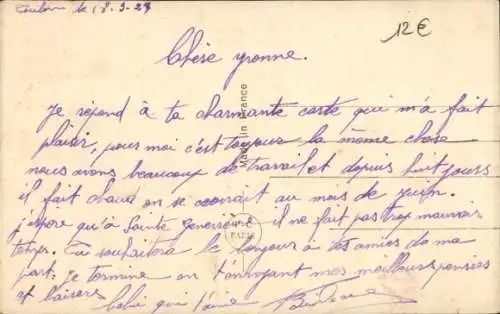 le 18-3-27
12€
Chère yvonne.
Je répond à ta charmante carte qui m'a fait
plaisir, pour moi c'est toujours la même chose
nous avons beaucoup de travail et depuis huit jours
il fait chaud on se croirait au mois de juin.
j'espère qu'à Sainte Geneviève il ne fait pas trop mauvais
temps. Tu souhaitera le bonjour à tes amies de ma
part. Je termine en t'envoyant mes meilleurs pensées
et baisers Celui qui t'aime
Made in France
PARIS